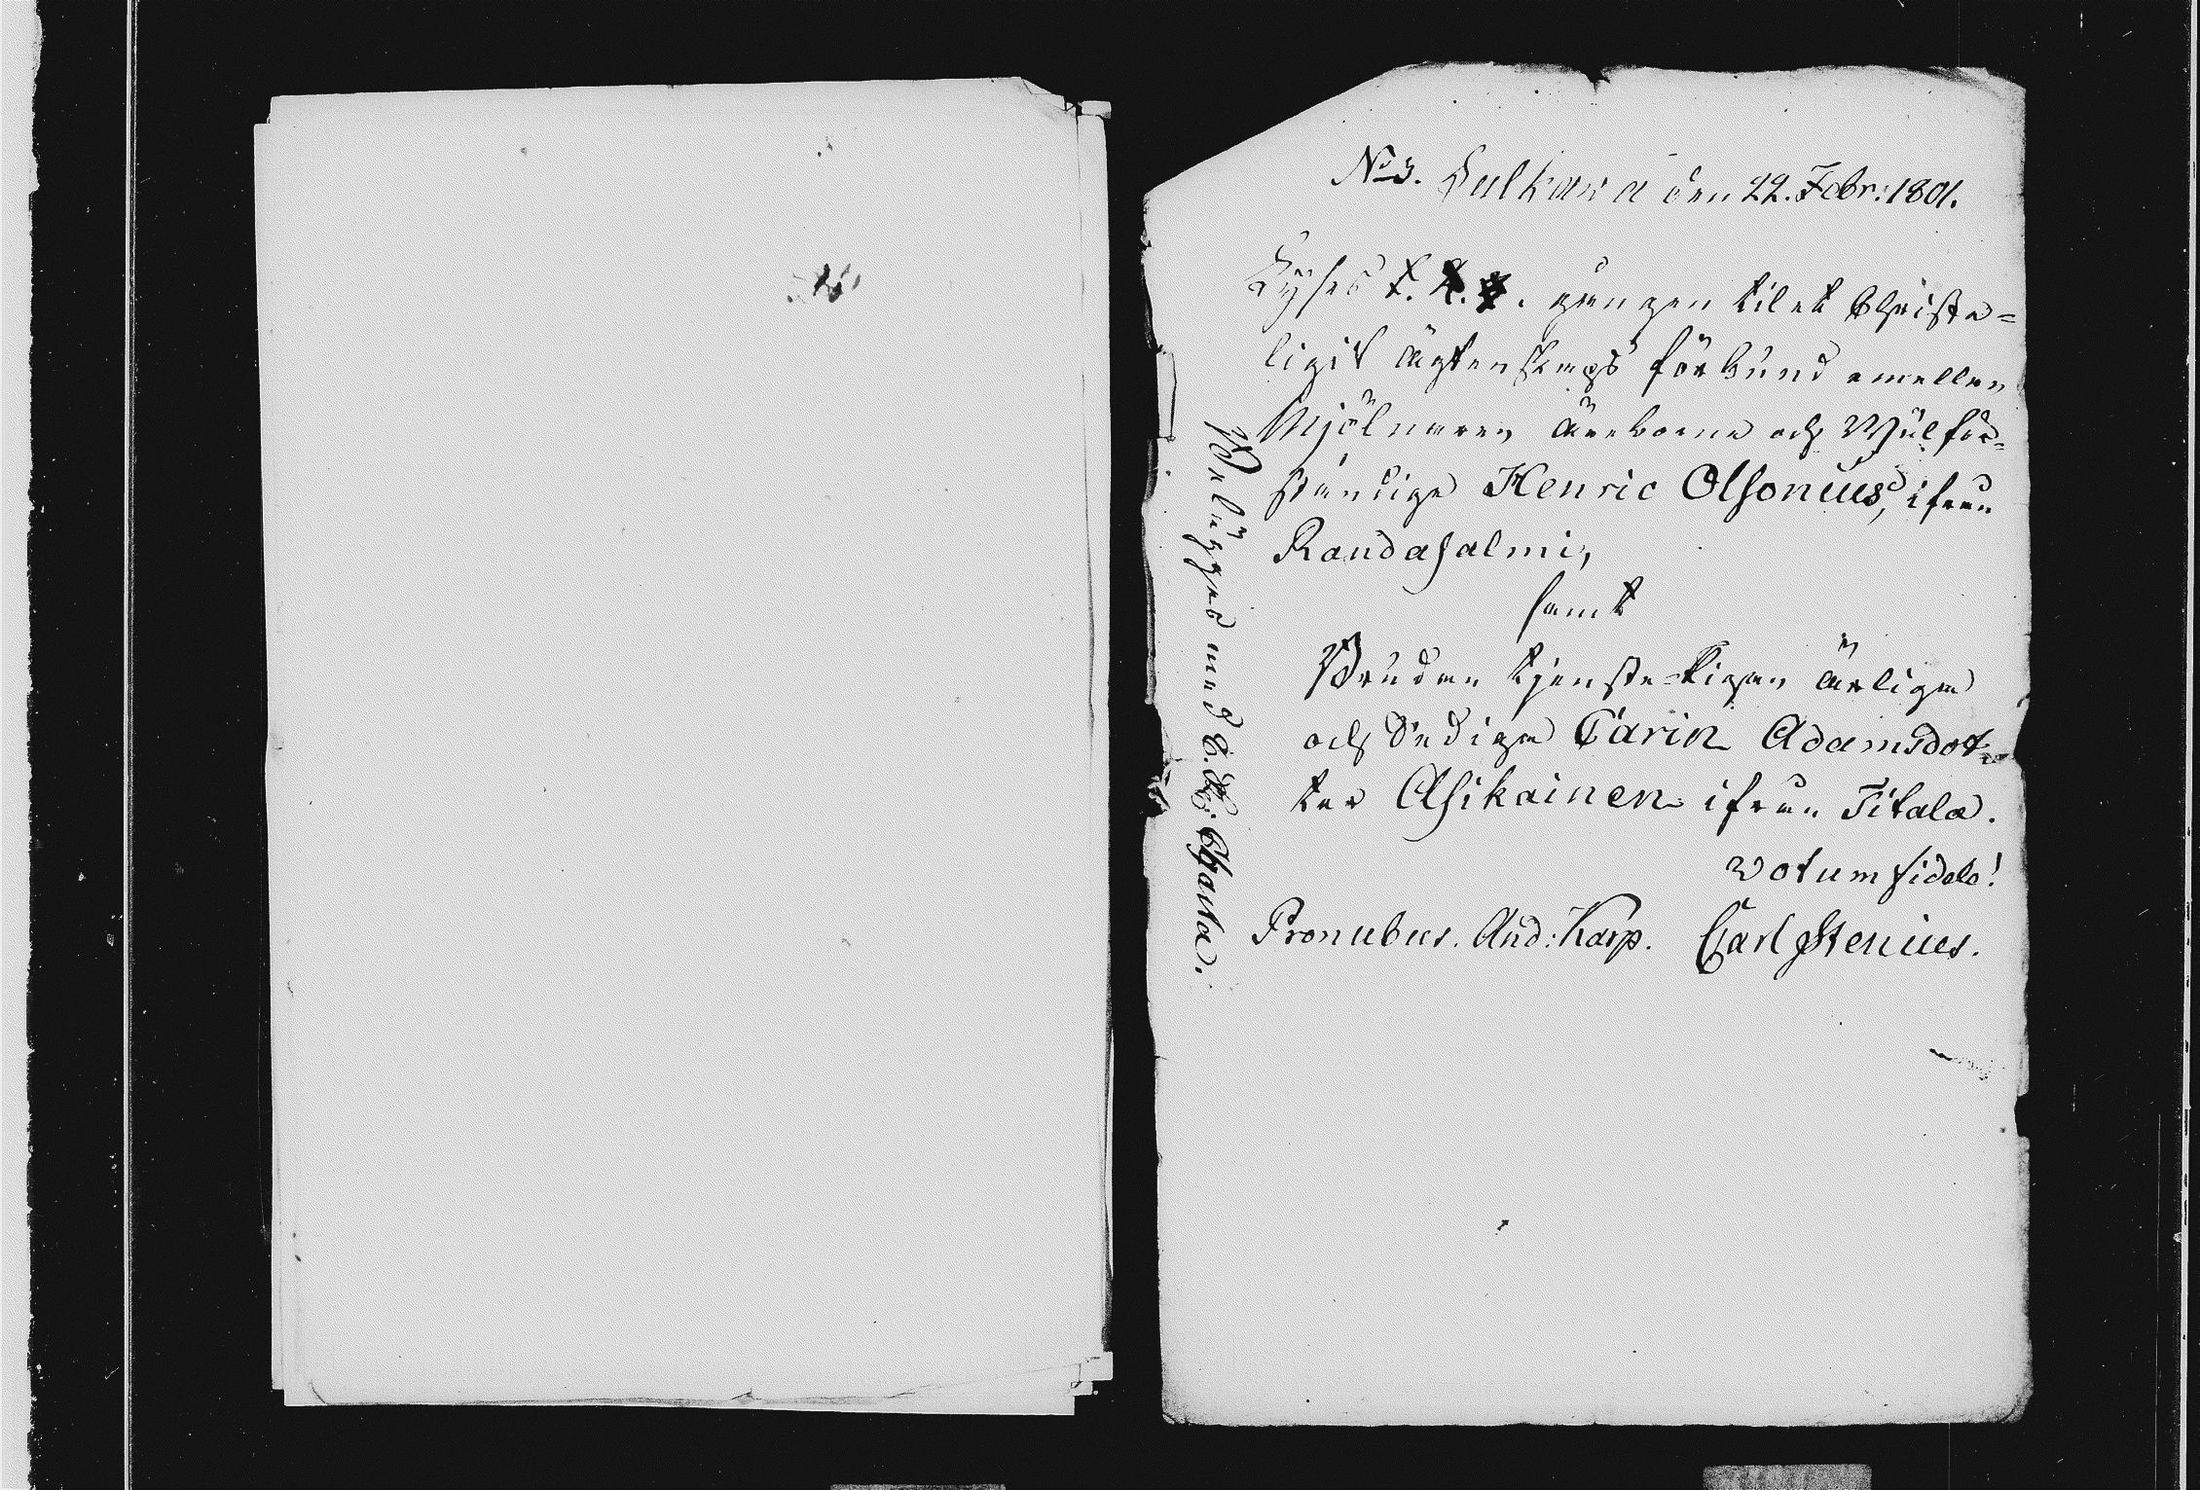 No 3. Sulkava den 22. Febr: 1801.
Lyses 1. 2. 3. gången til et Christe=
ligit ägtenskaps förbund emellan
Mjölnaren Äreborne och Wälför=
ståndige Henric Olsonius, ifrån
Randasalmi,
samt
Pigan tjenste-Pigan ärliga
och Sediga Carin Adamsdot=
ter Asikainen ifrån Titala.
Votum fidele!
Pronubus. And: Karp. Carl Stenius.
Belägges med C. S: Charta.